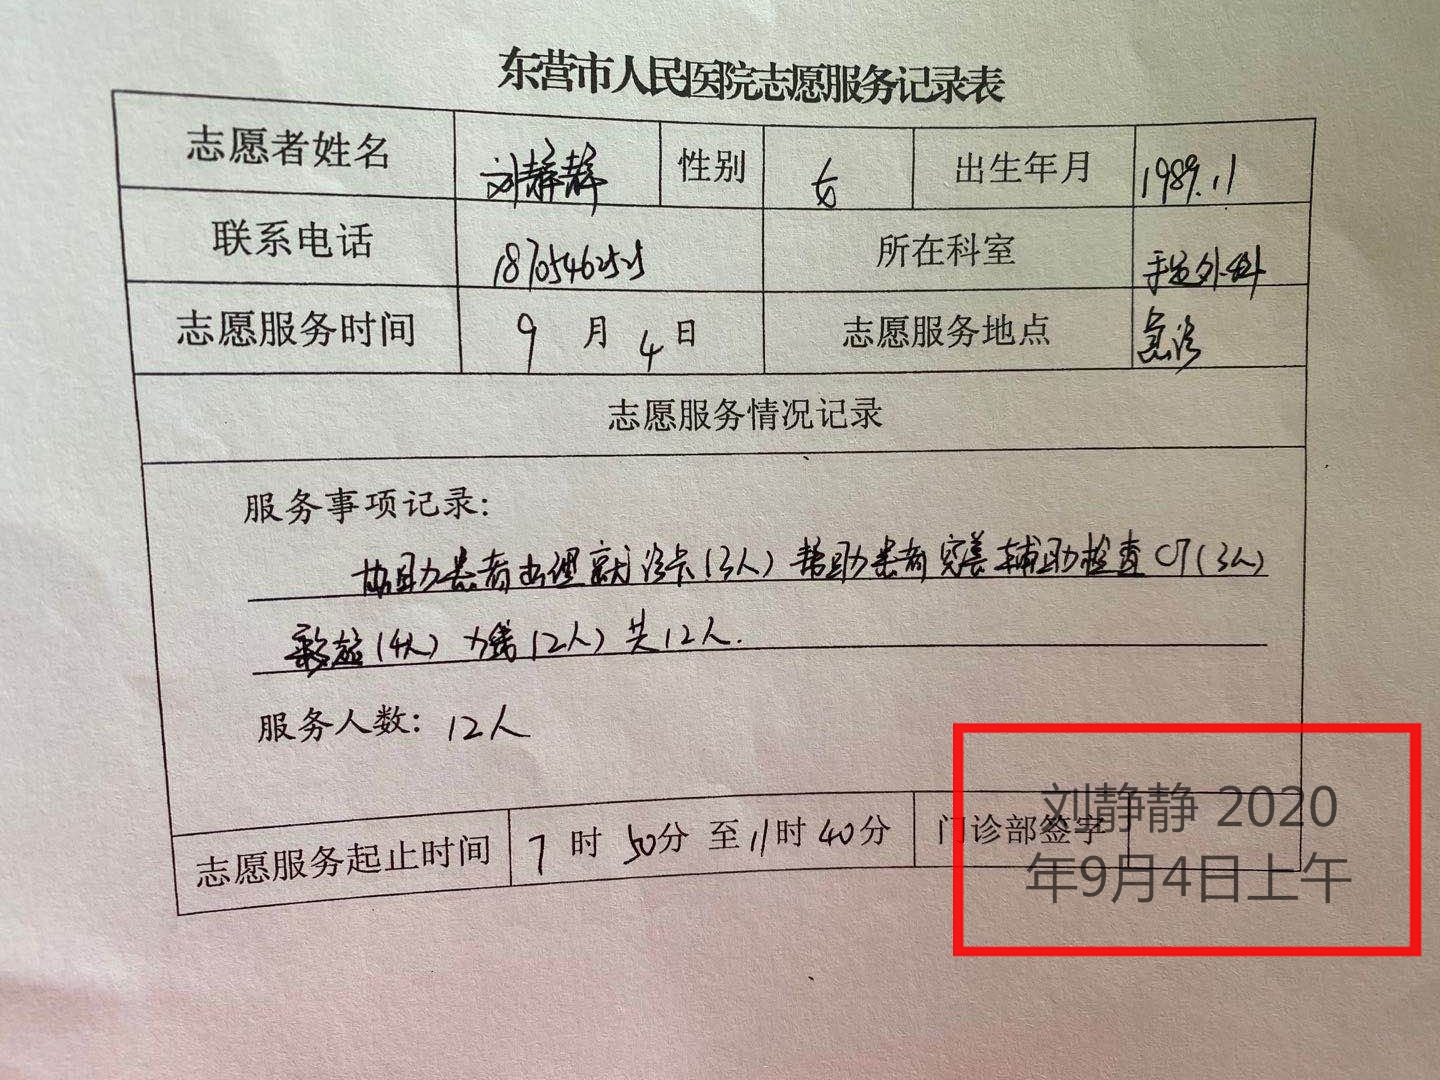 东营市人民医院志愿服务记录表
志愿者姓名 刘静静 性别 女 出生年月 1989.11
联系电话 18705462525 所在科室 手足外科
志愿服务时间 9月4日 志愿服务地点 急诊
志愿服务情况记录
服务事项记录：
协助患者办理就诊卡(3人) 帮助患者完善辅助检查CT(3人)
彩超(4人) 线(2人) 共12人.
服务人数：12人
志愿服务起止时间 7时50分至11时40分 门诊部签字
刘静静 2020
年9月4日上午